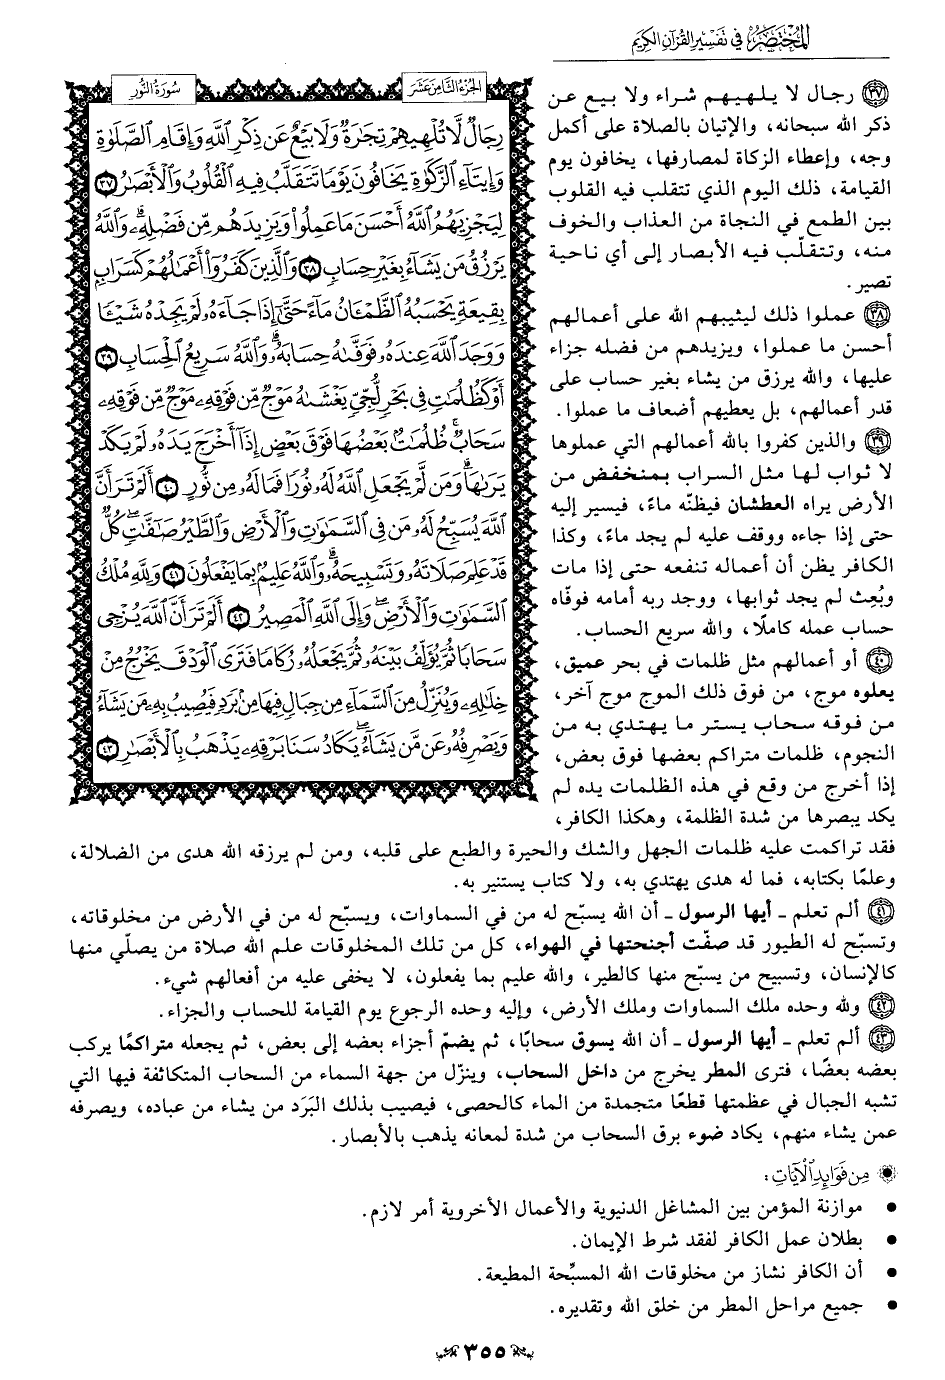 المختصر في تفسير القرآن الكريم
سورة النور
الجزء الثامن عشر
رِجَالٌ لَّا تُلْهِيهِمْ تِجَٰرَةٌ وَلَا بَيْعٌ عَن ذِكْرِ ٱللَّهِ وَإِقَامِ ٱلصَّلَوٰةِ
وَإِيتَآءِ ٱلزَّكَوٰةِ يَخَافُونَ يَوْمًا تَتَقَلَّبُ فِيهِ ٱلْقُلُوبُ وَٱلْأَبْصَٰرُ ٣٧
لِيَجْزِيَهُمُ ٱللَّهُ أَحْسَنَ مَا عَمِلُوا۟ وَيَزِيدَهُم مِّن فَضْلِهِۦ وَٱللَّهُ
يَرْزُقُ مَن يَشَآءُ بِغَيْرِ حِسَابٍ ٣٨ وَٱلَّذِينَ كَفَرُوٓا۟ أَعْمَٰلُهُمْ كَسَرَابٍۭ
بِقِيعَةٍ يَحْسَبُهُ ٱلظَّمْـَٔانُ مَآءً حَتَّىٰٓ إِذَا جَآءَهُۥ لَمْ يَجِدْهُ شَيْـًٔا
وَوَجَدَ ٱللَّهَ عِندَهُۥ فَوَفَّىٰهُ حِسَابَهُۥ وَٱللَّهُ سَرِيعُ ٱلْحِسَابِ ٣٩
أَوْ كَظُلُمَٰتٍ فِى بَحْرٍ لُّجِّىٍّ يَغْشَىٰهُ مَوْجٌ مِّن فَوْقِهِۦ مَوْجٌ مِّن فَوْقِهِۦ
سَحَابٌ ظُلُمَٰتٌۢ بَعْضُهَا فَوْقَ بَعْضٍ إِذَآ أَخْرَجَ يَدَهُۥ لَمْ يَكَدْ
يَرَىٰهَا وَمَن لَّمْ يَجْعَلِ ٱللَّهُ لَهُۥ نُورًا فَمَا لَهُۥ مِن نُّورٍ ٤٠ أَلَمْ تَرَ أَنَّ
ٱللَّهَ يُسَبِّحُ لَهُۥ مَن فِى ٱلسَّمَٰوَٰتِ وَٱلْأَرْضِ وَٱلطَّيْرُ صَٰٓفَّٰتٍ كُلٌّ
قَدْ عَلِمَ صَلَاتَهُۥ وَتَسْبِيحَهُۥ وَٱللَّهُ عَلِيمٌۢ بِمَا يَفْعَلُونَ ٤١ وَلِلَّهِ مُلْكُ
ٱلسَّمَٰوَٰتِ وَٱلْأَرْضِ وَإِلَى ٱللَّهِ ٱلْمَصِيرُ ٤٢ أَلَمْ تَرَ أَنَّ ٱللَّهَ يُزْجِى
سَحَابًا ثُمَّ يُؤَلِّفُ بَيْنَهُۥ ثُمَّ يَجْعَلُهُۥ رُكَامًا فَتَرَى ٱلْوَدْقَ يَخْرُجُ مِنْ
خِلَٰلِهِۦ وَيُنَزِّلُ مِنَ ٱلسَّمَآءِ مِن جِبَالٍ فِيهَا مِنۢ بَرَدٍ فَيُصِيبُ بِهِۦ مَن يَشَآءُ
وَيَصْرِفُهُۥ عَن مَّن يَشَآءُ يَكَادُ سَنَا بَرْقِهِۦ يَذْهَبُ بِٱلْأَبْصَٰرِ ٤٣
٣٧ رجال لا يلهيهم شراء ولا بيع عن
ذكر الله سبحانه، والإتيان بالصلاة على أكمل
وجه، وإعطاء الزكاة لمصارفها، يخافون يوم
القيامة، ذلك اليوم الذي تتقلب فيه القلوب
بين الطمع في النجاة من العذاب والخوف
منه، وتتقلّب فيه الأبصار إلى أي ناحية
تصير.
٣٨ عملوا ذلك ليثيبهم الله على أعمالهم
أحسن ما عملوا، ويزيدهم من فضله جزاء
عليها، والله يرزق من يشاء بغير حساب على
قدر أعمالهم، بل يعطيهم أضعاف ما عملوا.
٣٩ والذين كفروا بالله أعمالهم التي عملوها
لا ثواب لها مثل السراب بمنخفض من
الأرض يراه العطشان فيظنّه ماءً، فيسير إليه
حتى إذا جاءه ووقف عليه لم يجد ماءً، وكذا
الكافر يظن أن أعماله تنفعه حتى إذا مات
وبُعِث لم يجد ثوابها، ووجد ربه أمامه فوفّاه
حساب عمله كاملًا، والله سريع الحساب.
٤٠ أو أعمالهم مثل ظلمات في بحر عميق،
يعلوه موج، من فوق ذلك الموج موج آخر،
من فوقه سحاب يستر ما يهتدي به من
النجوم، ظلمات متراكم بعضها فوق بعض،
إذا أخرج من وقع في هذه الظلمات يده لم
يكد يبصرها من شدة الظلمة، وهكذا الكافر،
فقد تراكمت عليه ظلمات الجهل والشك والحيرة والطبع على قلبه، ومن لم يرزقه الله هدى من الضلالة،
وعلمًا بكتابه، فما له هدى يهتدي به، ولا كتاب يستنير به.
٤١ ألم تعلم ـ أيها الرسول ـ أن الله يسبّح له من في السماوات، ويسبّح له من في الأرض من مخلوقاته،
وتسبّح له الطيور قد صفّت أجنحتها في الهواء، كل من تلك المخلوقات علم الله صلاة من يصلّي منها
كالإنسان، وتسبيح من يسبّح منها كالطير، والله عليم بما يفعلون، لا يخفى عليه من أفعالهم شيء.
٤٢ ولله وحده ملك السماوات وملك الأرض، وإليه وحده الرجوع يوم القيامة للحساب والجزاء.
٤٣ ألم تعلم ـ أيها الرسول ـ أن الله يسوق سحابًا، ثم يضمّ أجزاء بعضه إلى بعض، ثم يجعله متراكمًا يركب
بعضه بعضًا، فترى المطر يخرج من داخل السحاب، وينزّل من جهة السماء من السحاب المتكاثفة فيها التي
تشبه الجبال في عظمتها قطعًا متجمدة من الماء كالحصى، فيصيب بذلك البَرَد من يشاء من عباده، ويصرفه
عمن يشاء منهم، يكاد ضوء برق السحاب من شدة لمعانه يذهب بالأبصار.
من فوائد الآيات:
● موازنة المؤمن بين المشاغل الدنيوية والأعمال الأخروية أمر لازم.
● بطلان عمل الكافر لفقد شرط الإيمان.
● أن الكافر نشاز من مخلوقات الله المسبِّحة المطيعة.
● جميع مراحل المطر من خلق الله وتقديره.
٣٥٥